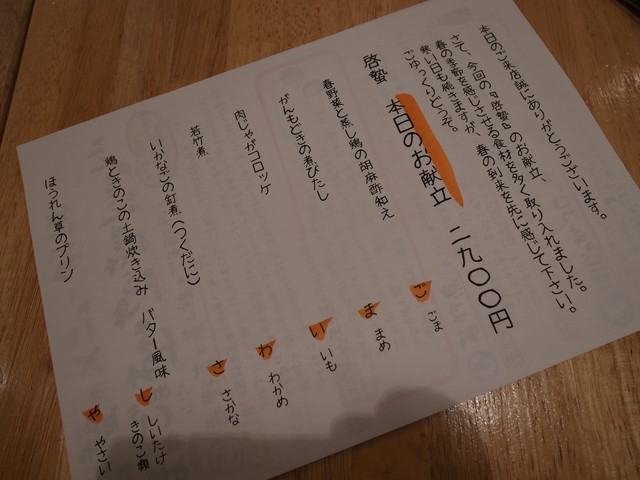 本日のご来店誠にありがとうございます。
さて、今回の『啓蟄』のお献立、
春の季節を感じさせる食材を多く取り入れました。
寒い日も続きますが、春の到来を先に感じて下さい。
ごゆっくりどうぞ。
啓蟄 本日のお献立 二九〇〇円
春野菜と蒸し鶏の胡麻酢和え ご ごま
がんもどきの煮びたし ま まめ
肉じゃがコロッケ い いも
若竹煮 わ わかめ
いかなごの釘煮(つくだに) さ さかな
鶏ときのこの土鍋炊き込み バター風味 し しいたけ
きのこ類
ほうれん草のプリン や やさい